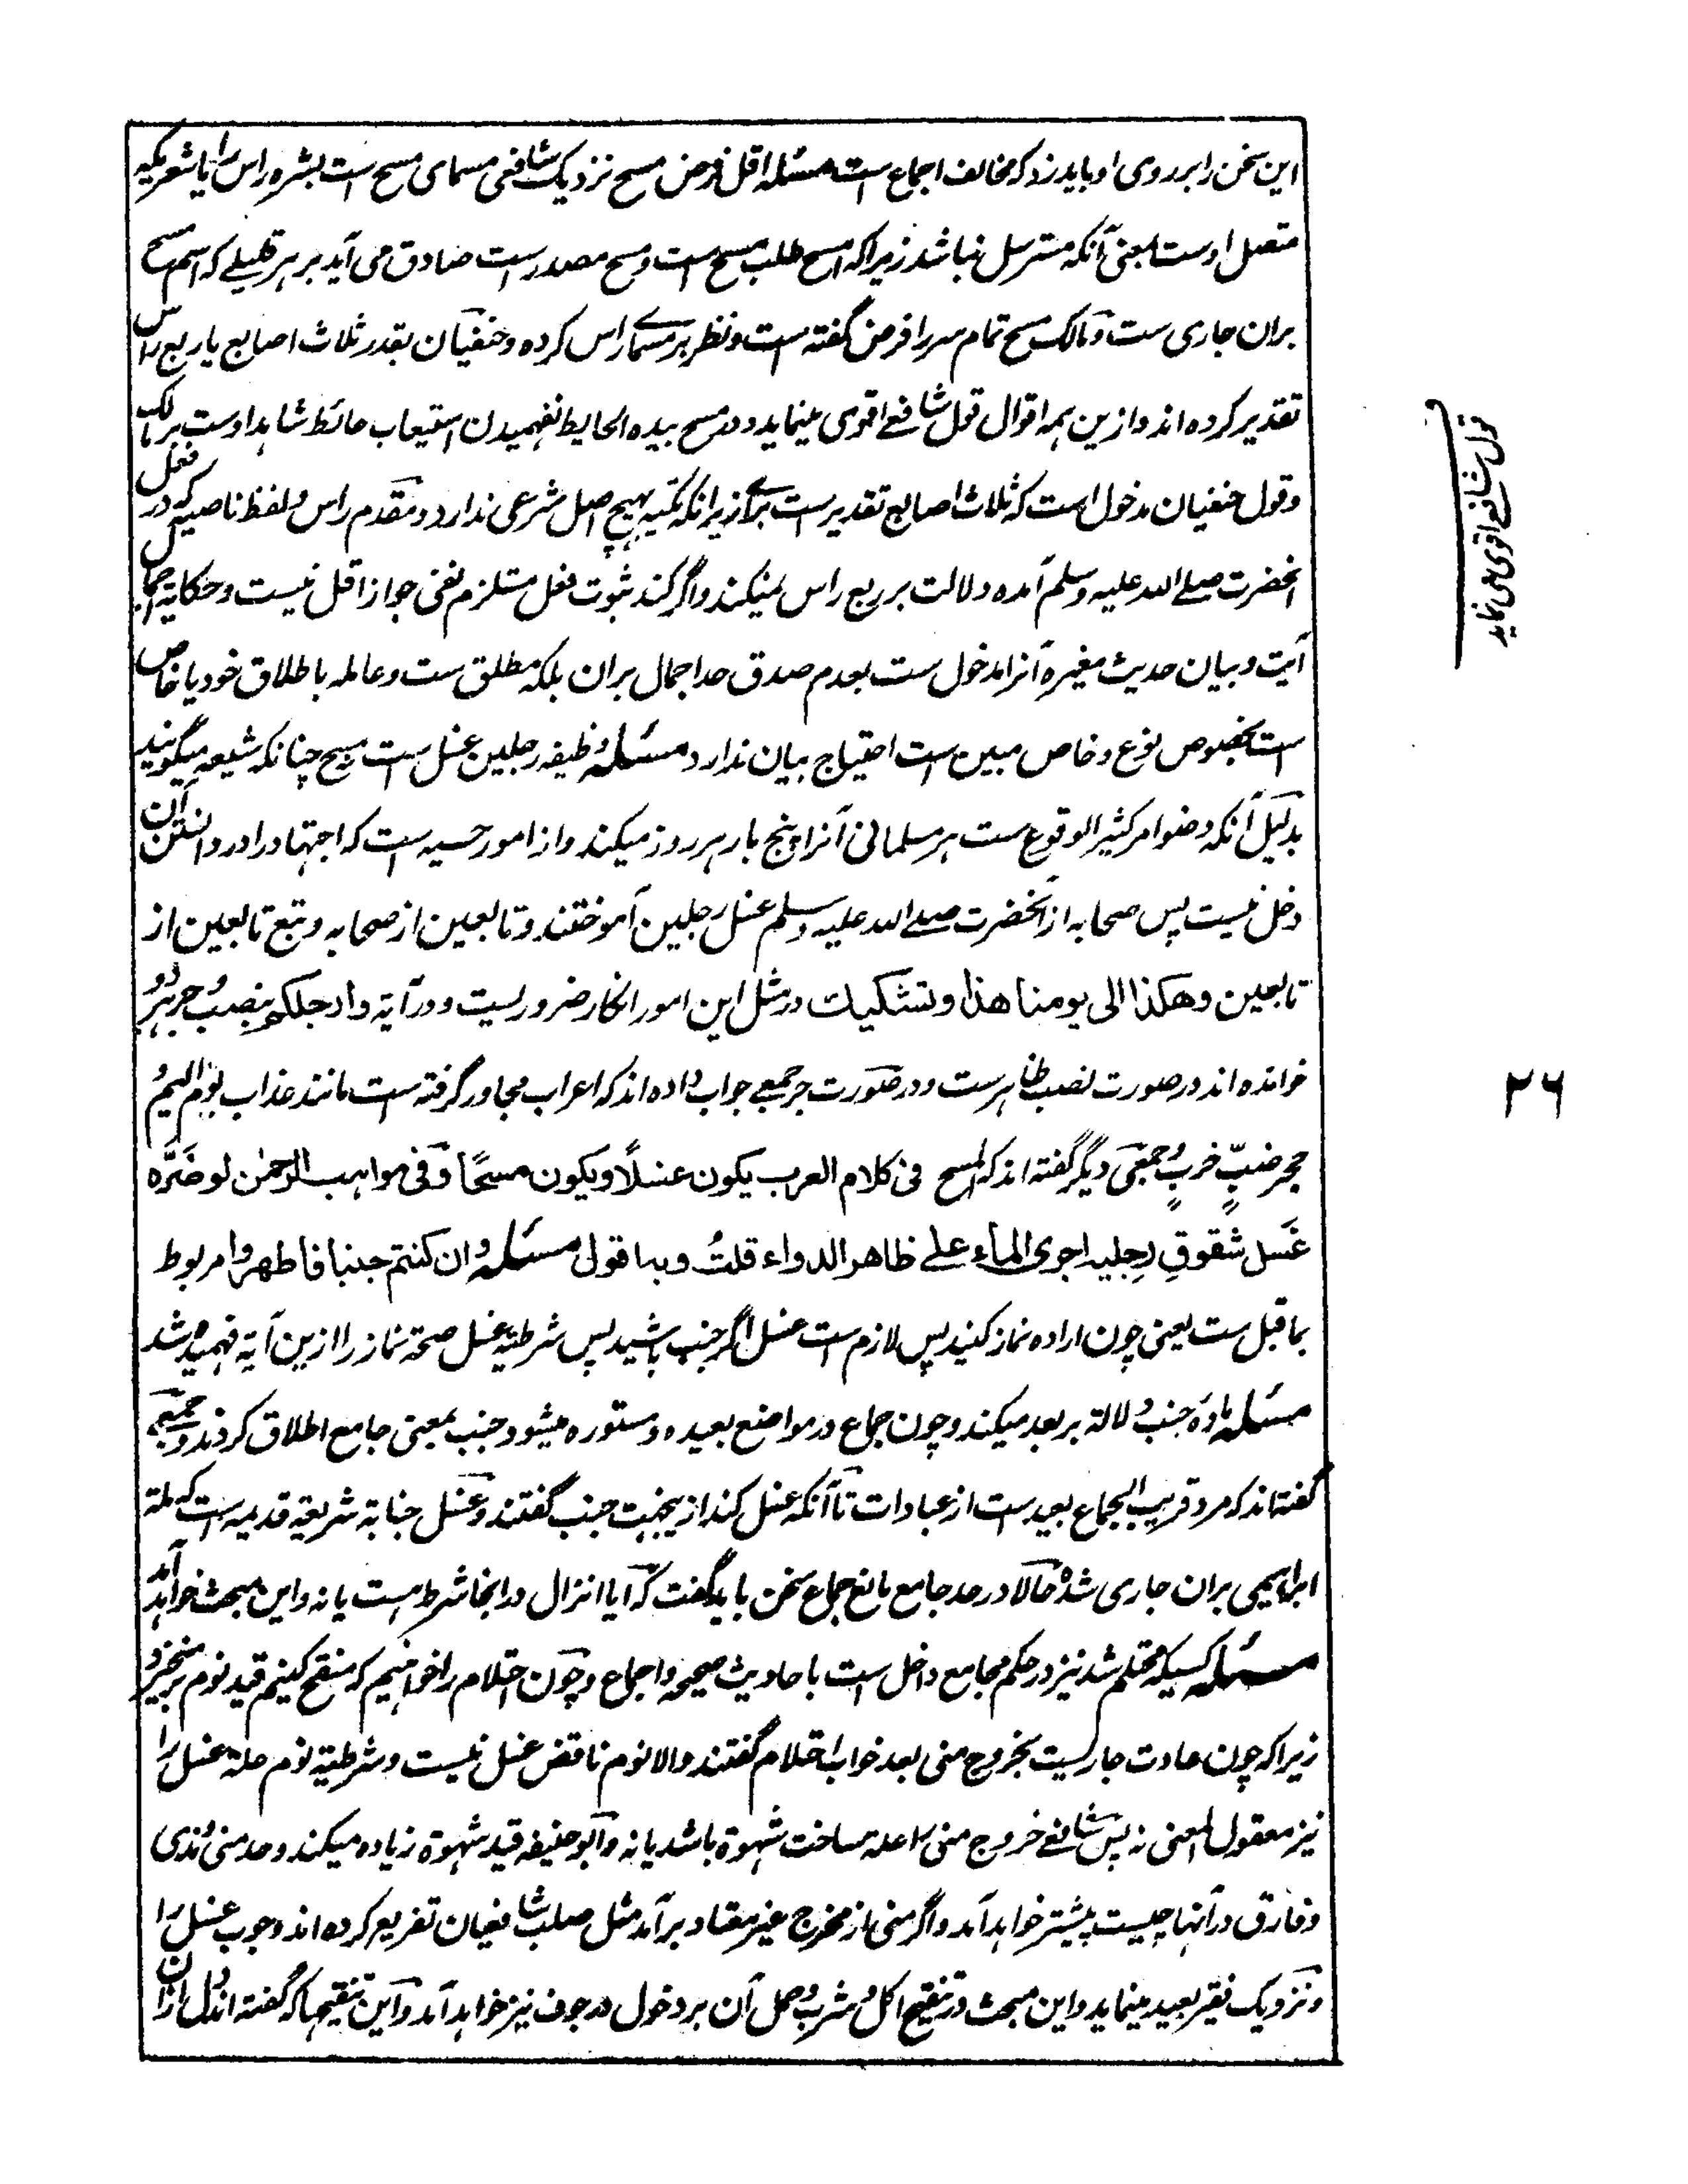 این سخن را بر روی او باید زد که مخالف اجماع است مسئله اقل فرض مسح نزدیک شافعی مسمای مسح است بشره راس را یا شعریکه
متصل اوست بمعنی آنکه مسترسل نباشد زیرا که امسح طلب مسح است و مسح مصدر است صادق می آید بر هر قلیلے که اسم مسح
بران جاری ست و مالک مسح تمام سر را فرض گفته است و نظر بر مسماے راس کرده و حنفیان بقدر ثلاث اصابع یا ربع راس
تقدیر کرده اند و ازین همه اقوال قول شافعے اقوی مینماید و در مسح بیده الحایط نفهمیدن استیعاب حائط شاهد اوست بر مالک
و قول حنفیان مدخول است که ثلاث اصابع تقدیر ست براے زیرانکه هیچ اصل شرعی ندارد و مقدم راس و لفظ ناصیه که در فعل
آنحضرت صلے الله علیه وسلم آمده دلالت بر ربع راس نمیکند و اگر کند ثبوت فعل مستلزم نفی جواز اقل نیست و حکایة اجمال
آیت و بیان حدیث مغیره آنرا مدخول ست بعدم صدق حد اجمال بران بلکه مطلق ست و عامله باطلاق خود یا خاص
است بخصوص نوع و خاص مبین است احتیاج ببیان ندارد مسئله وظیفه رجلین غسل ست نه مسح چنانکه شیعه میگویند
بدلیل آنکه وضو امر کثیر الوقوع ست هر مسلمانی آنرا پنج بار هر روز میکند و از امور حسیه است که اجتهاد را در دانستن آن
دخل نیست پس صحابه از آنحضرت صلے الله علیه وسلم غسل رجلین آموختند و تابعین از صحابه و تبع تابعین از
تابعین و هکذا الی یومنا هذا و تشکیک در مثل این امور انکار ضروریست و در آیة وارجلکم بنصب و جر هر دو
خوانده اند در صورت نصب ظاهر ست و در صورت جر جمعے جواب داده اند که اعراب مجاور گرفته است مانند عذاب یوم الیم و
جحر ضبٍّ خربٍ و جمعی دیگر گفته اند که المسح فی کلام العرب یکون غسلاً ویکون مسحًا و فی مواهب الرحمٰن لو ضَرَّه
غَسل شقوقِ رِجلیه اجری الماء علے ظاهر الدواء قلتُ وبه اقول مسئله و ان کنتم جنبا فاطهروا مربوط
بما قبل ست یعنی چون اراده نماز کنید پس لازم ست غسل اگر جنب باشید پس شرطیة غسل صحة نماز را ازین آیة فهمیده شد
مسئله ماده جنب دلالة بر بعد میکند و چون جماع در مواضع بعیده و مستوره میشود جنب بمعنی جامع اطلاق کردند و جمعے
گفته اند که مرد قریب الجماع بعید ست از عبادات تا آنکه غسل کند ازینجهت جنب گفتند و غسل جنابة شریعة قدیمه است که ملة
ابراهیمی بران جاری شده حالا در حد جامع مانع جماع سخن باید گفت که آیا انزال در اینجا شرط است یا نه و این مبحث خواهد آمد
مسئله کسیکه محتلم شد نیز در حکم مجامع داخل است باحادیث صحیحه و اجماع و چون احتلام را خواهیم که منقح کنیم قید نوم برخیزد
زیرا که چون عادت جاریست بخروج منی بعد خواب احتلام گفتند والا نوم ناقض غسل نیست و شرطیة نوم علة غسل را
نیز معقول المعنی نه پس شافعے خروج منی را علة ساخت شهوة باشد یا نه و ابو حنیفه قید شهوة زیاده میکند و حد منی و مذی
و فارق در آنها چیست پیشتر خواهد آمد و اگر منی از مخرج غیر معتاد برآمد مثل صلب شافعیان تفریع کرده اند وجوب غسل را
و نزدیک فقیر بعید مینماید و این مبحث در تنقیح اکل و شرب و حمل آن بر دخول در جوف نیز خواهد آمد و این تنقیحها که گفته اند دل ازان
قول شافعے اقوی می نماید
۲۶